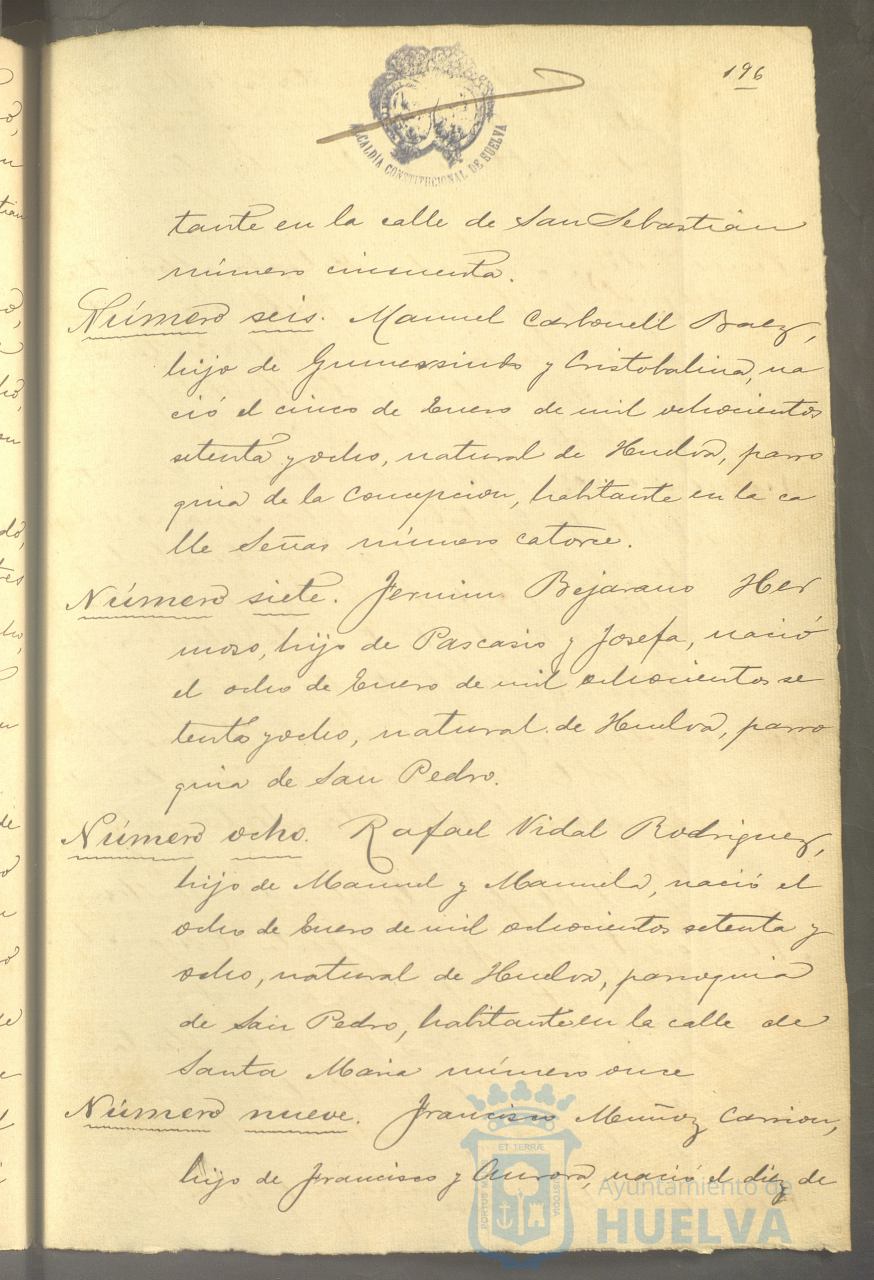 196
ALCALDIA CONSTITUCIONAL DE HUELVA
tante en la calle de San Sebastian
número cincuenta.
Número seis. Manuel Carbonell Baez,
hijo de Gumersindo y Cristobalina, na
ció el cinco de Enero de mil ochocientos
setenta y ocho, natural de Huelva, parro
quia de la Concepcion, habitante en la ca
lle Señas número catorce.
Número siete. Fermin Bejarano Her
moso, hijo de Pascasio y Josefa, nació
el ocho de Enero de mil ochocientos se
tenta y ocho, natural de Huelva, parro
quia de San Pedro.
Número ocho. Rafael Vidal Rodriguez,
hijo de Manuel y Manuela, nació el
ocho de Enero de mil ochocientos setenta y
ocho, natural de Huelva, parroquia
de San Pedro, habitante en la calle de
Santa Maria número once
Número nueve. Francisco Muñoz Carrion,
hijo de Francisco y Aurora, nació el diez de
ET TERRÆ
PORTUS
CUSTODIA
Ayuntamiento de
HUELVA